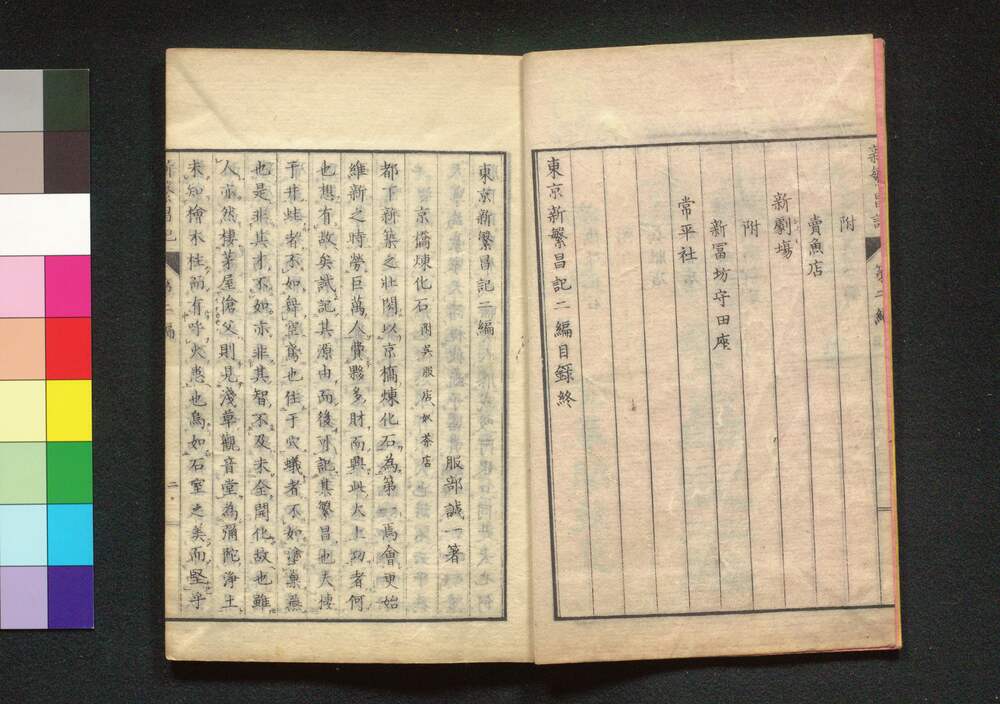 附
賣魚店
新劇塲
附
新冨坊守田座
常平社
東京新繁昌記二編目録終
東京新繁昌記二編
服部誠一著
京橋煉化石 附呉服店奴茶店
都下新築之壯閎以京橋煉化石為第一焉會更始
維新之時勞巨萬人費夥多財而興此大土功者何
也想有故矣試記其源由而後可記其繁昌也夫棲
于井蛙者不如舞 也住于穴蟻者不如塗巢燕
也是非其才不如亦非其智不及未全開化故也雖
人亦然棲茅屋傖父則見淺草觀音堂為彌陀淨土
未知檜木柱而有呼火患也烏如石室之美而堅乎